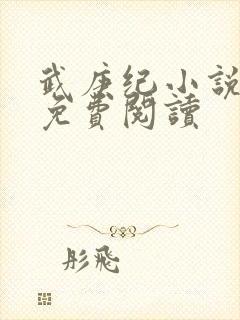 武庚纪小說
免費閱讀
彤飛